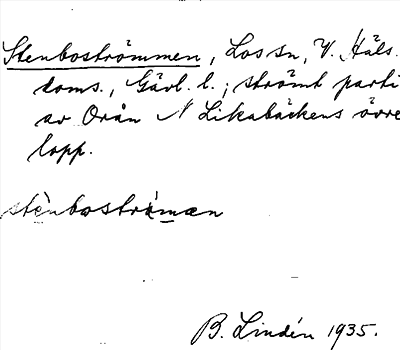 Stenboströmmen, Los sn, V. Häls.
doms., Gävl. l.; strömt parti
av Orån N Likabäckens övre
lopp.
stènboströ̀mæn
B. Lindén 1935.